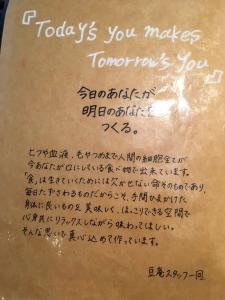 『Today's you makes
Tomorrow's you』
今日のあなたが
明日のあなたを
つくる。
ヒフや血液、毛やつめまで人間の細胞全てが
今あなたが口にしている食べ物で出来ています。
「食」は生きていくためには欠かせない命そのものであり、
毎日たずさわるものだからこそ、手間ひまかけた
身体に良いものを美味しく、ほっこりできる空間で
心身共にリラックスしながら味わってほしい。
そんな思いで真心込めて作っています。
豆庵スタッフ一同